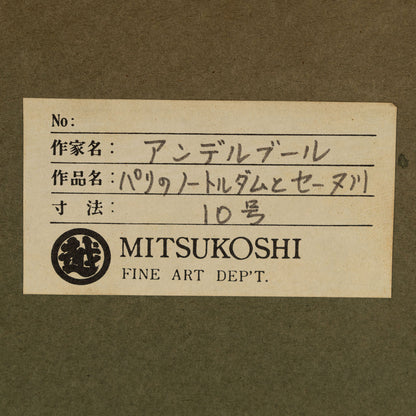 No:
作家名: アンデルブール
作品名: パリのノートルダムとセーヌ川
寸法: 10号
越
MITSUKOSHI
FINE ART DEP'T.